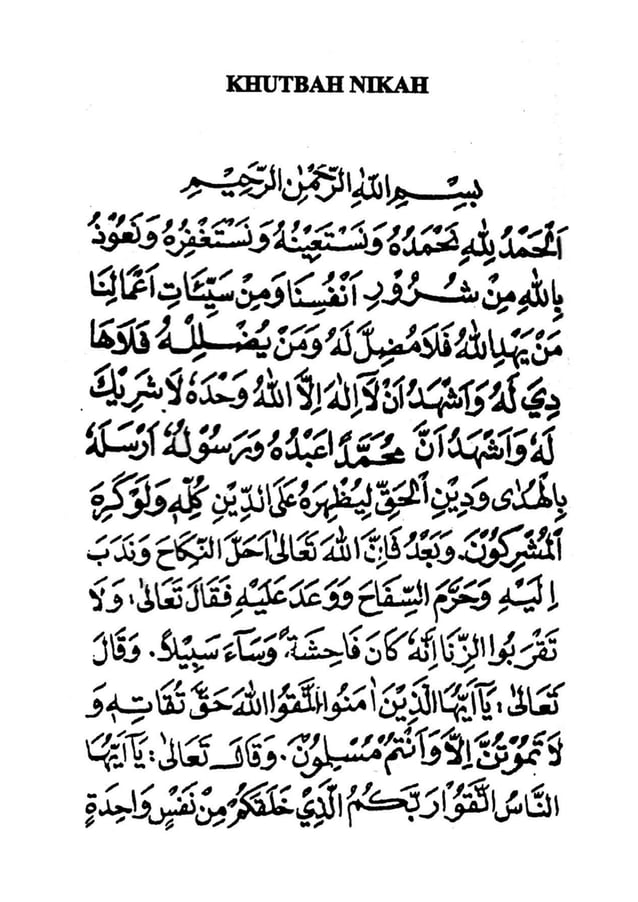 KHUTBAH NIKAH
بِسْمِ اللهِ الرَّحْمٰنِ الرَّحِيْمِ
اَلْحَمْدُ لِلّٰهِ نَحْمَدُهُ وَنَسْتَعِيْنُهُ وَنَسْتَغْفِرُهُ وَنَعُوْذُ
بِاللهِ مِنْ شُرُوْرِ اَنْفُسِنَا وَمِنْ سَيِّئَاتِ اَعْمَالِنَا
مَنْ يَهْدِ اللهُ فَلَا مُضِلَّ لَهُ وَمَنْ يُضْلِلْهُ فَلَاهَا
دِيَ لَهُ وَاَشْهَدُ اَنْ لَآ اِلٰهَ اِلَّا اللهُ وَحْدَهُ لَا شَرِيْكَ
لَهُ وَاَشْهَدُ اَنَّ مُحَمَّدًا عَبْدُهُ وَرَسُوْلُهُ اَرْسَلَهُ
بِالْهُدٰى وَدِيْنِ الْحَقِّ لِيُظْهِرَهُ عَلَى الدِّيْنِ كُلِّهِ وَلَوْ كَرِهَ
الْمُشْرِكُوْنَ. وَبَعْدُ فَاِنَّ اللهَ تَعَالٰى اَحَلَّ النِّكَاحَ وَنَدَبَ
اِلَيْهِ وَحَرَّمَ السِّفَاحَ وَوَعَدَ عَلَيْهِ فَقَالَ تَعَالٰى: وَلَا
تَقْرَبُوا الزِّنَا اِنَّهُ كَانَ فَاحِشَةً وَسَآءَ سَبِيْلًا. وَقَالَ
تَعَالٰى: يَآاَيُّهَا الَّذِيْنَ اٰمَنُوا اتَّقُوا اللهَ حَقَّ تُقَاتِهِ وَ
لَا تَمُوْتُنَّ اِلَّا وَاَنْتُمْ مُسْلِمُوْنَ. وَقَالَ تَعَالٰى: يَآاَيُّهَا
النَّاسُ اتَّقُوْا رَبَّكُمُ الَّذِيْ خَلَقَكُمْ مِنْ نَفْسٍ وَاحِدَةٍ